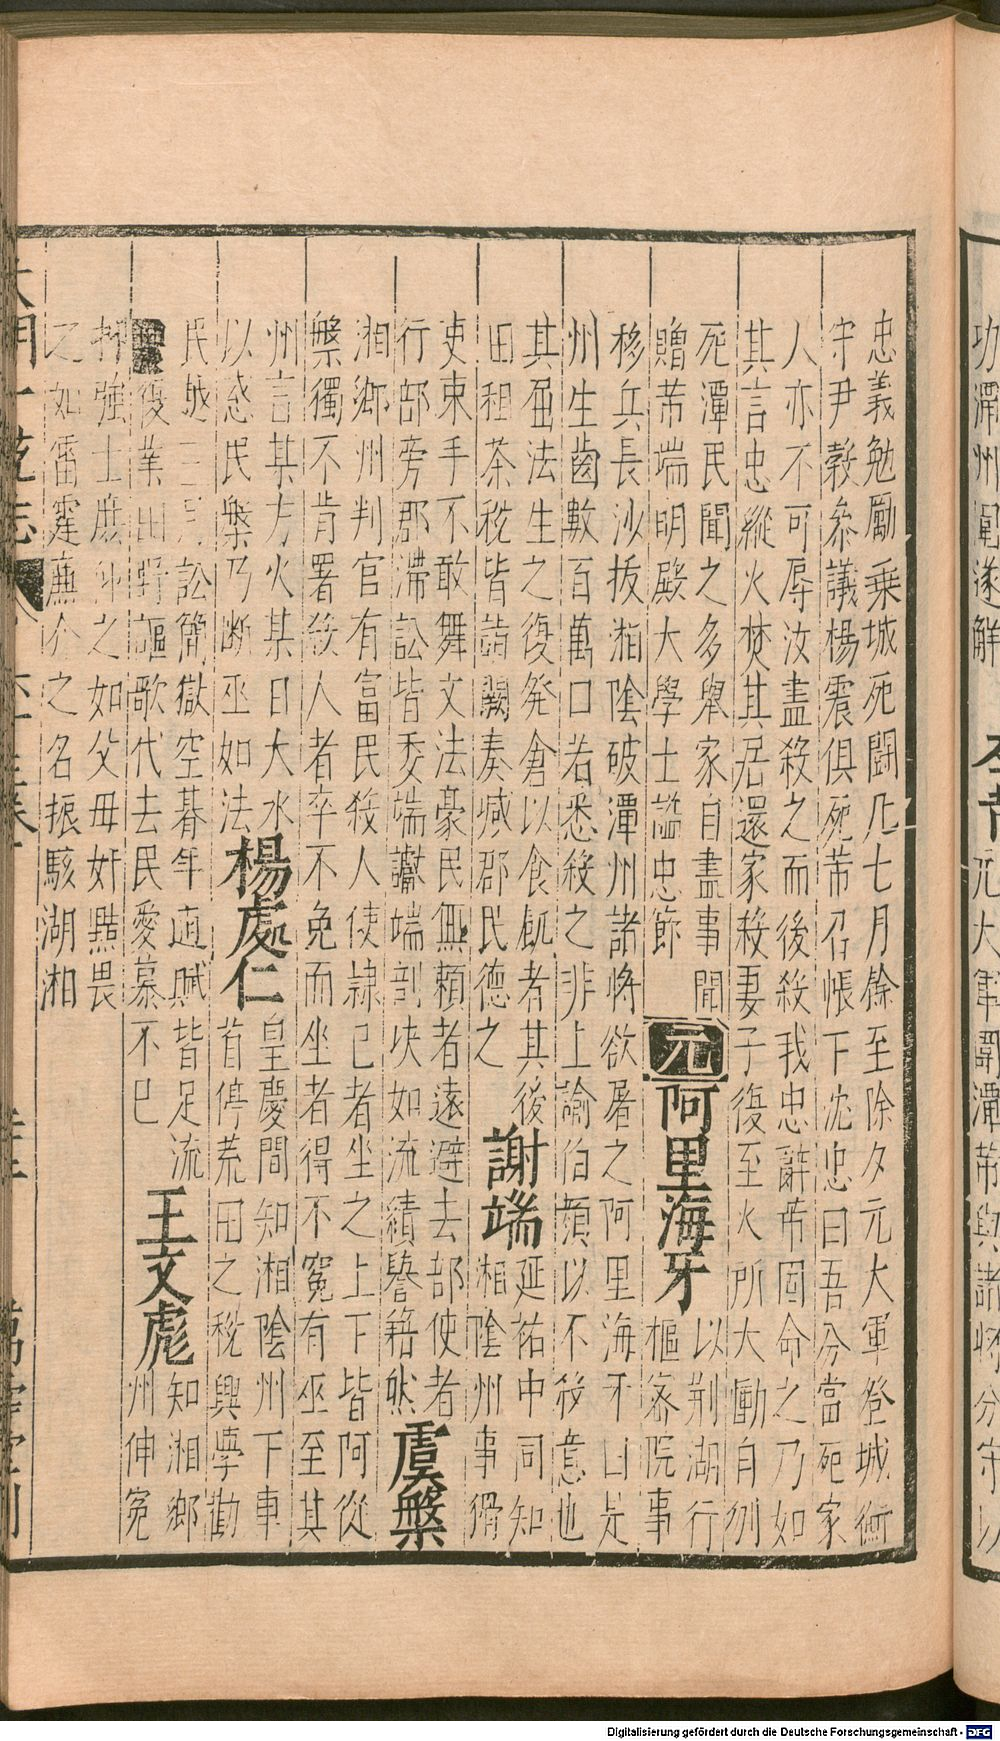 功潭州圍遂解 李芾 元大軍圍潭芾與諸將分守以
忠義勉勵乘城死鬪凡七月餘至除夕元大軍登城衡
守尹穀叅議楊震俱死芾召帳下沈忠曰吾分當死家
人亦不可辱汝盡殺之而後殺我忠辭芾固命之乃如
其言忠縱火焚其居還家殺妻子復至火所大慟自刎
死潭民聞之多舉家自盡事聞
贈芾端明殿大學士謚忠節
元 阿里海牙
以荆湖行
樞密院事
移兵長沙拔湘陰破潭州諸將欲屠之阿里海牙曰是
州生齒數百萬口若悉殺之非上諭伯顏以不殺意也
其亟法生之復発倉以食飢者其後
田租茶稅皆詣闕奏减郡民德之
謝端
延祐中同知
湘陰州事猾
吏束手不敢舞文法豪民無頼者遠避去部使者
行部旁郡滯訟皆委端讞端剖决如流績譽籍然
虞槃
湘鄉州判官有富民殺人使隷已者坐之上下皆阿從
槃獨不肯署殺人者卒不免而坐者得不寃有巫至其
州言某方火某日大水
以惑民槃乃断巫如法
楊處仁
皇慶間知湘陰州下車
首停荒田之稅興學勸
民越三月訟簡獄空暮年逋賦皆足流
復業田野謳歌代去民愛慕不已
王文彪
知湘鄉
州伸寃
抑強士庶仰之如父毋奸黠畏
之如雷霆蕪介之名振駭湖湘
大明一統志 萬壽堂刊
Digitalisierung gefördert durch die Deutsche Forschungsgemeinschaft - DFG